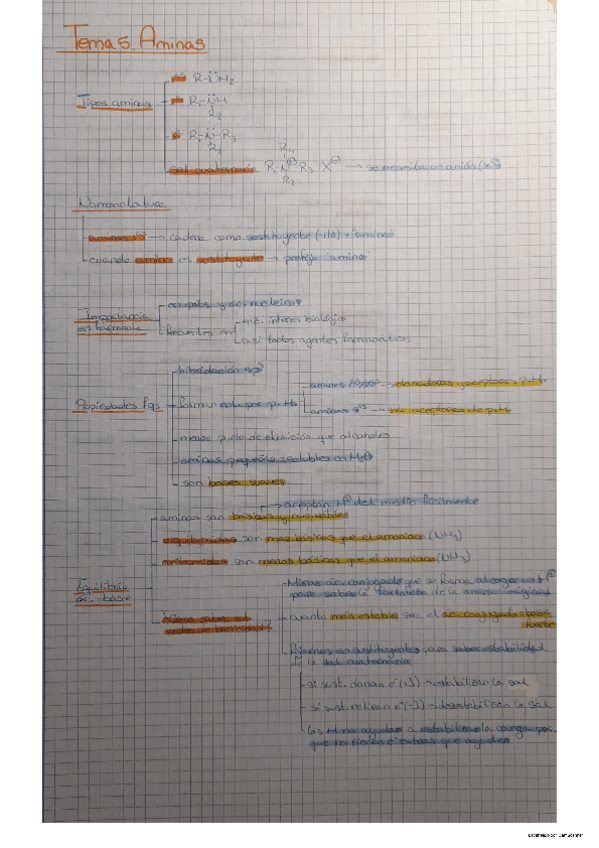 Tema 5. Aminas
Tipos aminas
R-NH2
R1-NH
R2
R1-N-R3
R2
sal cuaternaria R1-N⊕R3 X⊖ → se necesita un anión (X⊖)
R4
R2
Nomenclatura
aminas → cadena como sustituyente (-ilo) + "amina"
cuando amina es sustituyente → prefijo "amino"
Importancia en farmacia
y ác. nucleicos
frecuentes en
mol. interés biológico
casi todos agentes farmacéuticos
Propiedades fqs
hibridación sp3
forman enlaces p. H
aminas 1ª/2ª → donadoras y aceptoras p. H
aminas 3ª → solo aceptoras de p. H
menos punto de ebullición que alcoholes
aminas pequeñas solubles en H2O
son bases suaves
Equilibrio ác.-base
aminas son básicas y nucleófilas
→ aceptan H⊕ del medio fácilmente
alquilaminas son más básicas que el amoniaco (NH3)
arilaminas son menos básicas que el amoniaco (NH3)
¿Cómo saber el orden de basicidad?
Miramos ác. conjugado que se forma al coger un H⊕
para saber la fortaleza de la amina original
cuanto más estable sea el ác. conjugado + base
fuerte
Fijarnos en sustituyentes para saber estabilidad
de la sal cuaternaria
si sust. donan e- (+I) → estabilizan la sal
si sust. retiran e- (-I) → desestabilizan la sal
Los H no ayudan a estabilizar la carga por-
que no tienen e- extras que ayuden